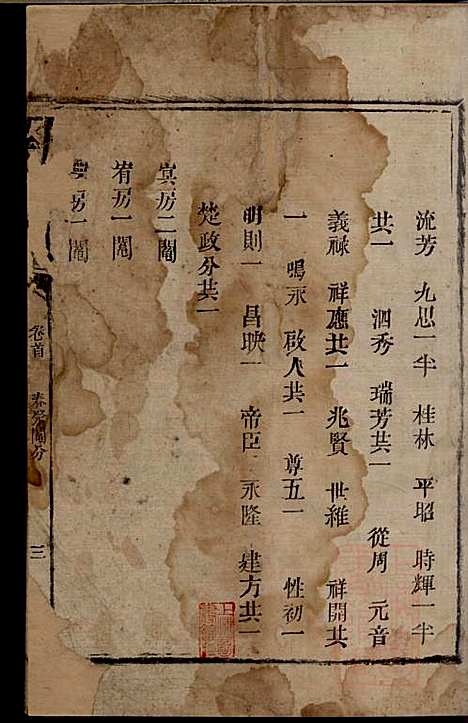 流芳 九思一半 桂林 平昭 時輝一半
共一 泗秀 瑞芳共一 從周 元音
義祿 祥應共一 兆賢 世維 祥開共
一 鳴永 啟人共一 尊五一 性初一
明則一 昌映一 帝臣 永隆 建方共一
楚政分共一
寞房二閹
宥房一閹
房一閹
卷首 三